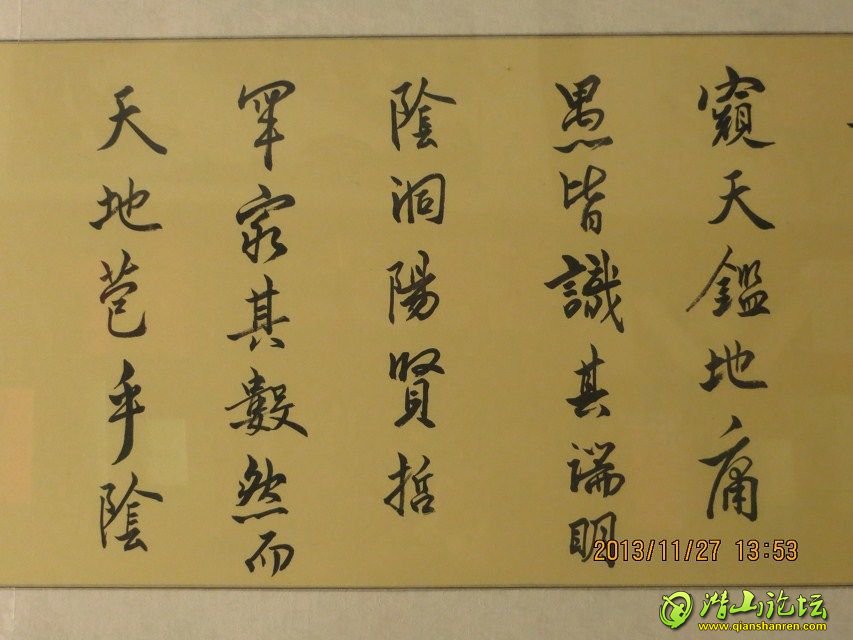 窺天鑑地庸
愚皆識其端明
陰洞陽賢哲
罕窮其數然而
天地苞乎陰
2013/11/27 13:53
潜山论坛
www.qianshanren.com